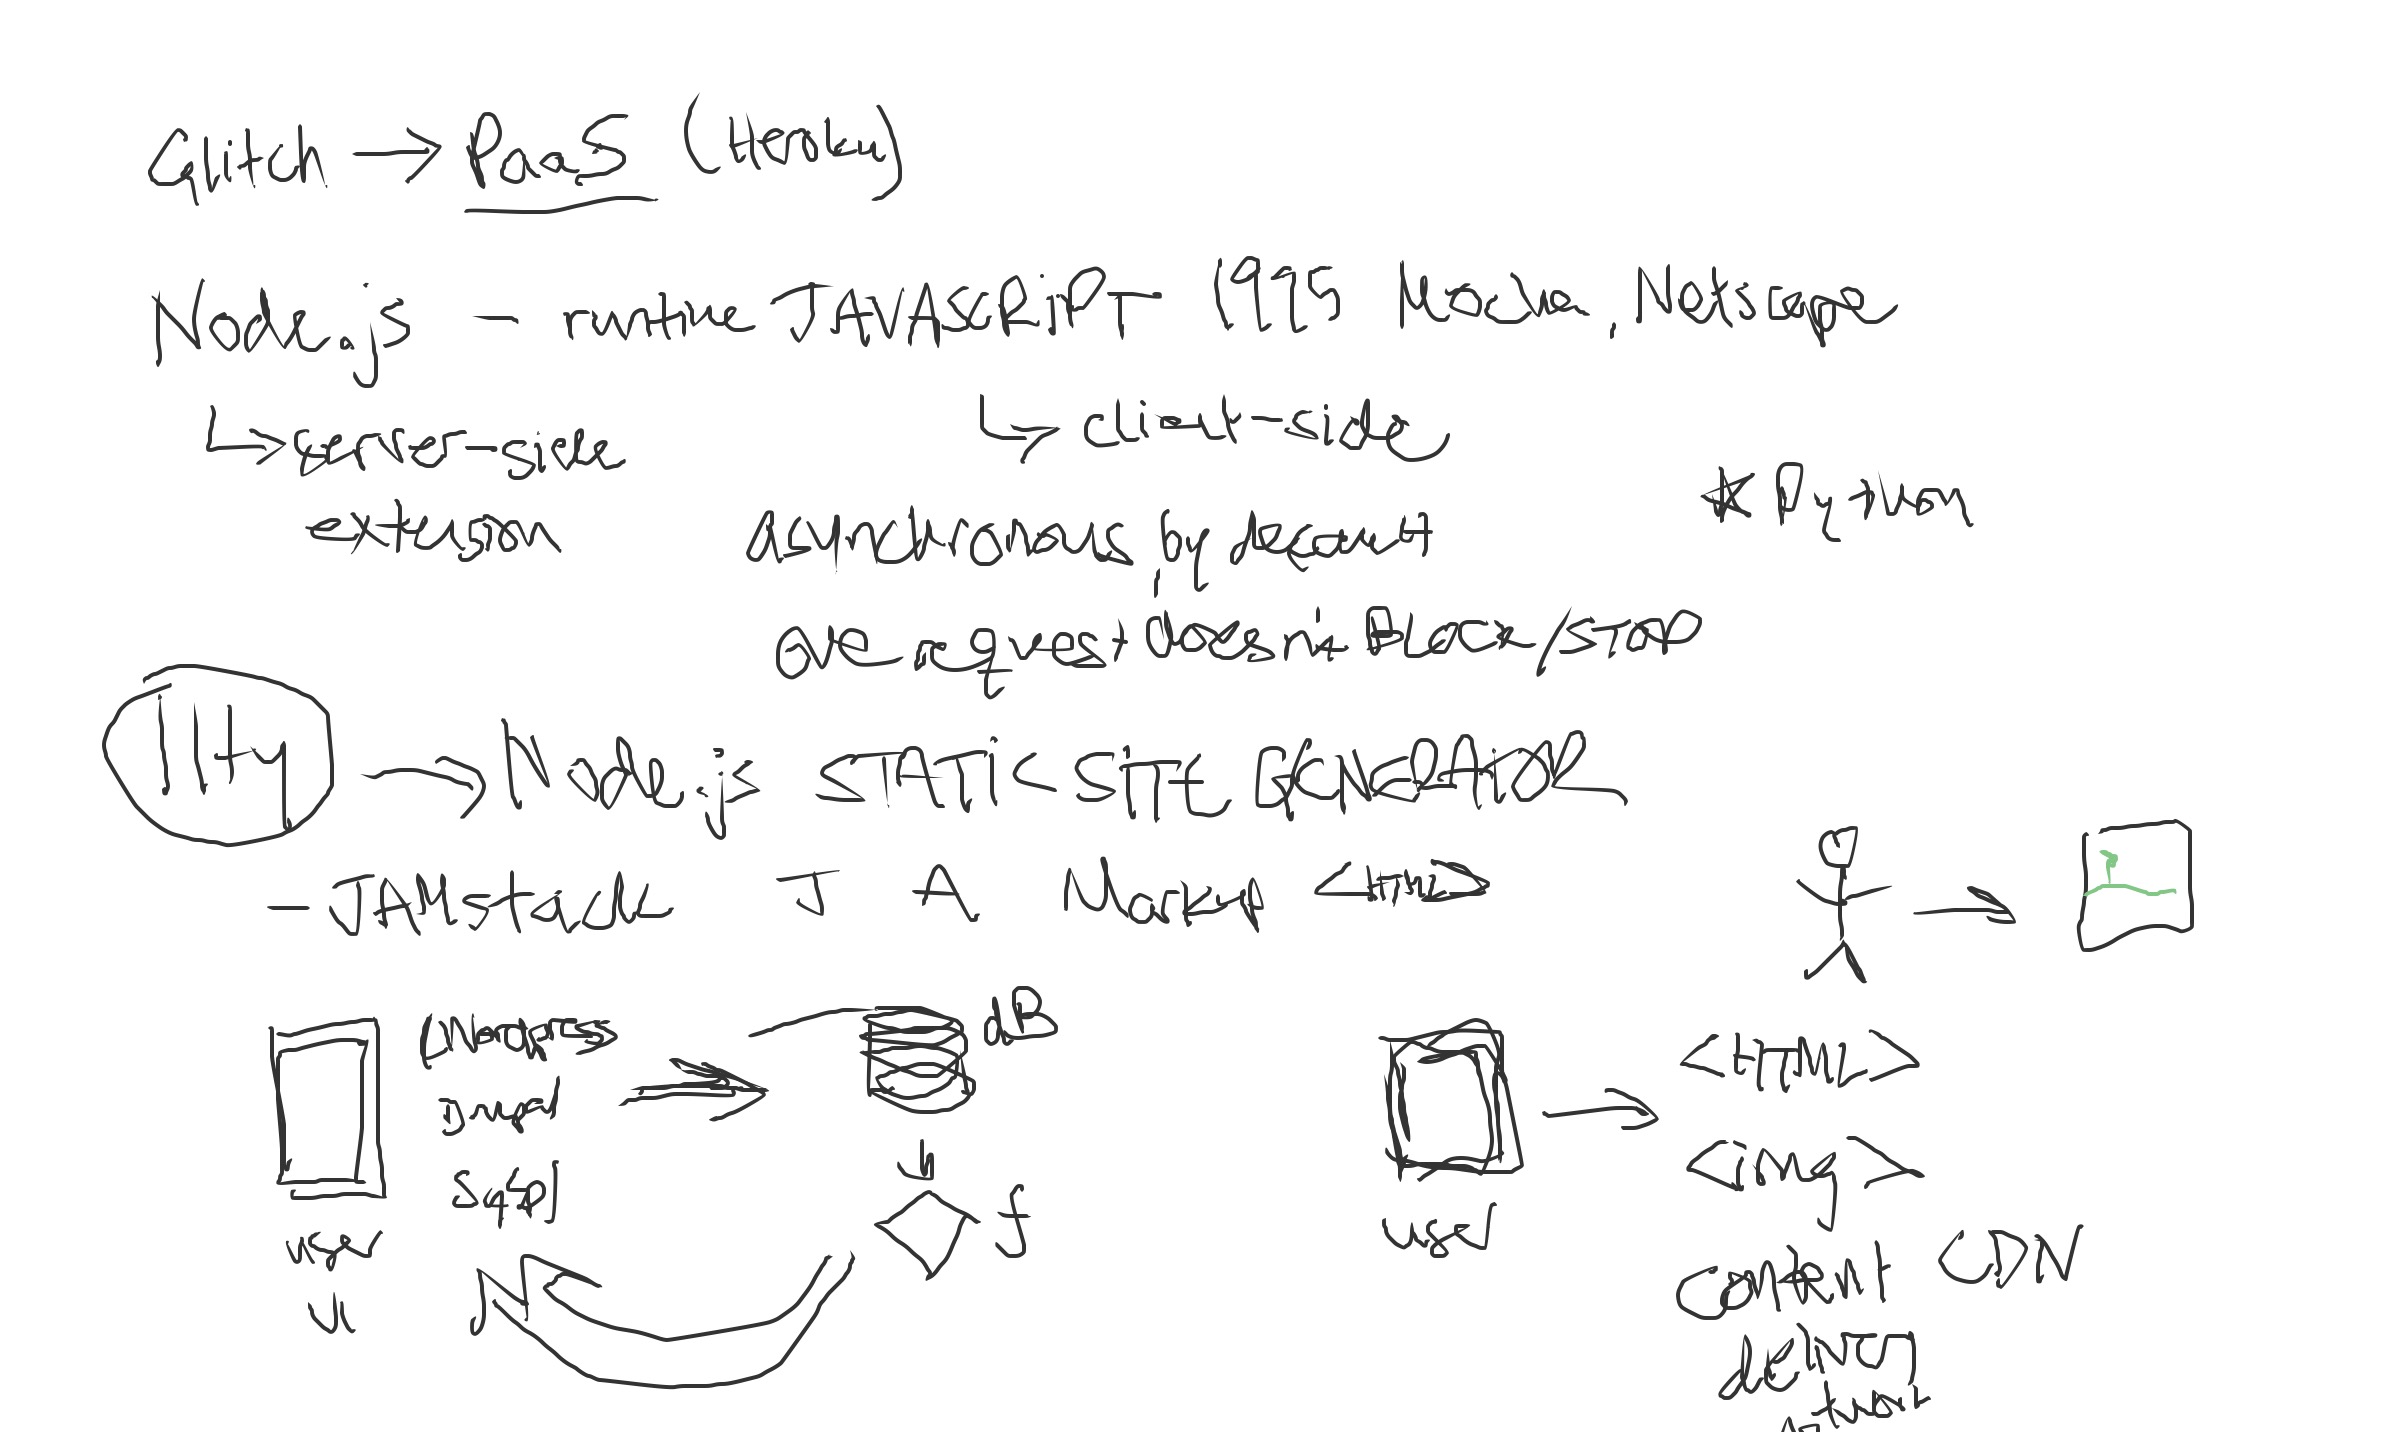 Glitch → PaaS (Heroku)
Node.js - runtime JAVASCRiPT 1995 Mocha, Netscape
↳ server-side extension
↳ client-side
* Python
asynchronous by default
one request doesn't BLOCK/STOP
11ty → Node.js STATiC SiTE GENERATOR
- JAMstack J A Markup <HTML>
[Wordpress
Drupal
SqSp]
dB
f
user
UI
user
<HTML>
<img>
CDN
content
delivery
network